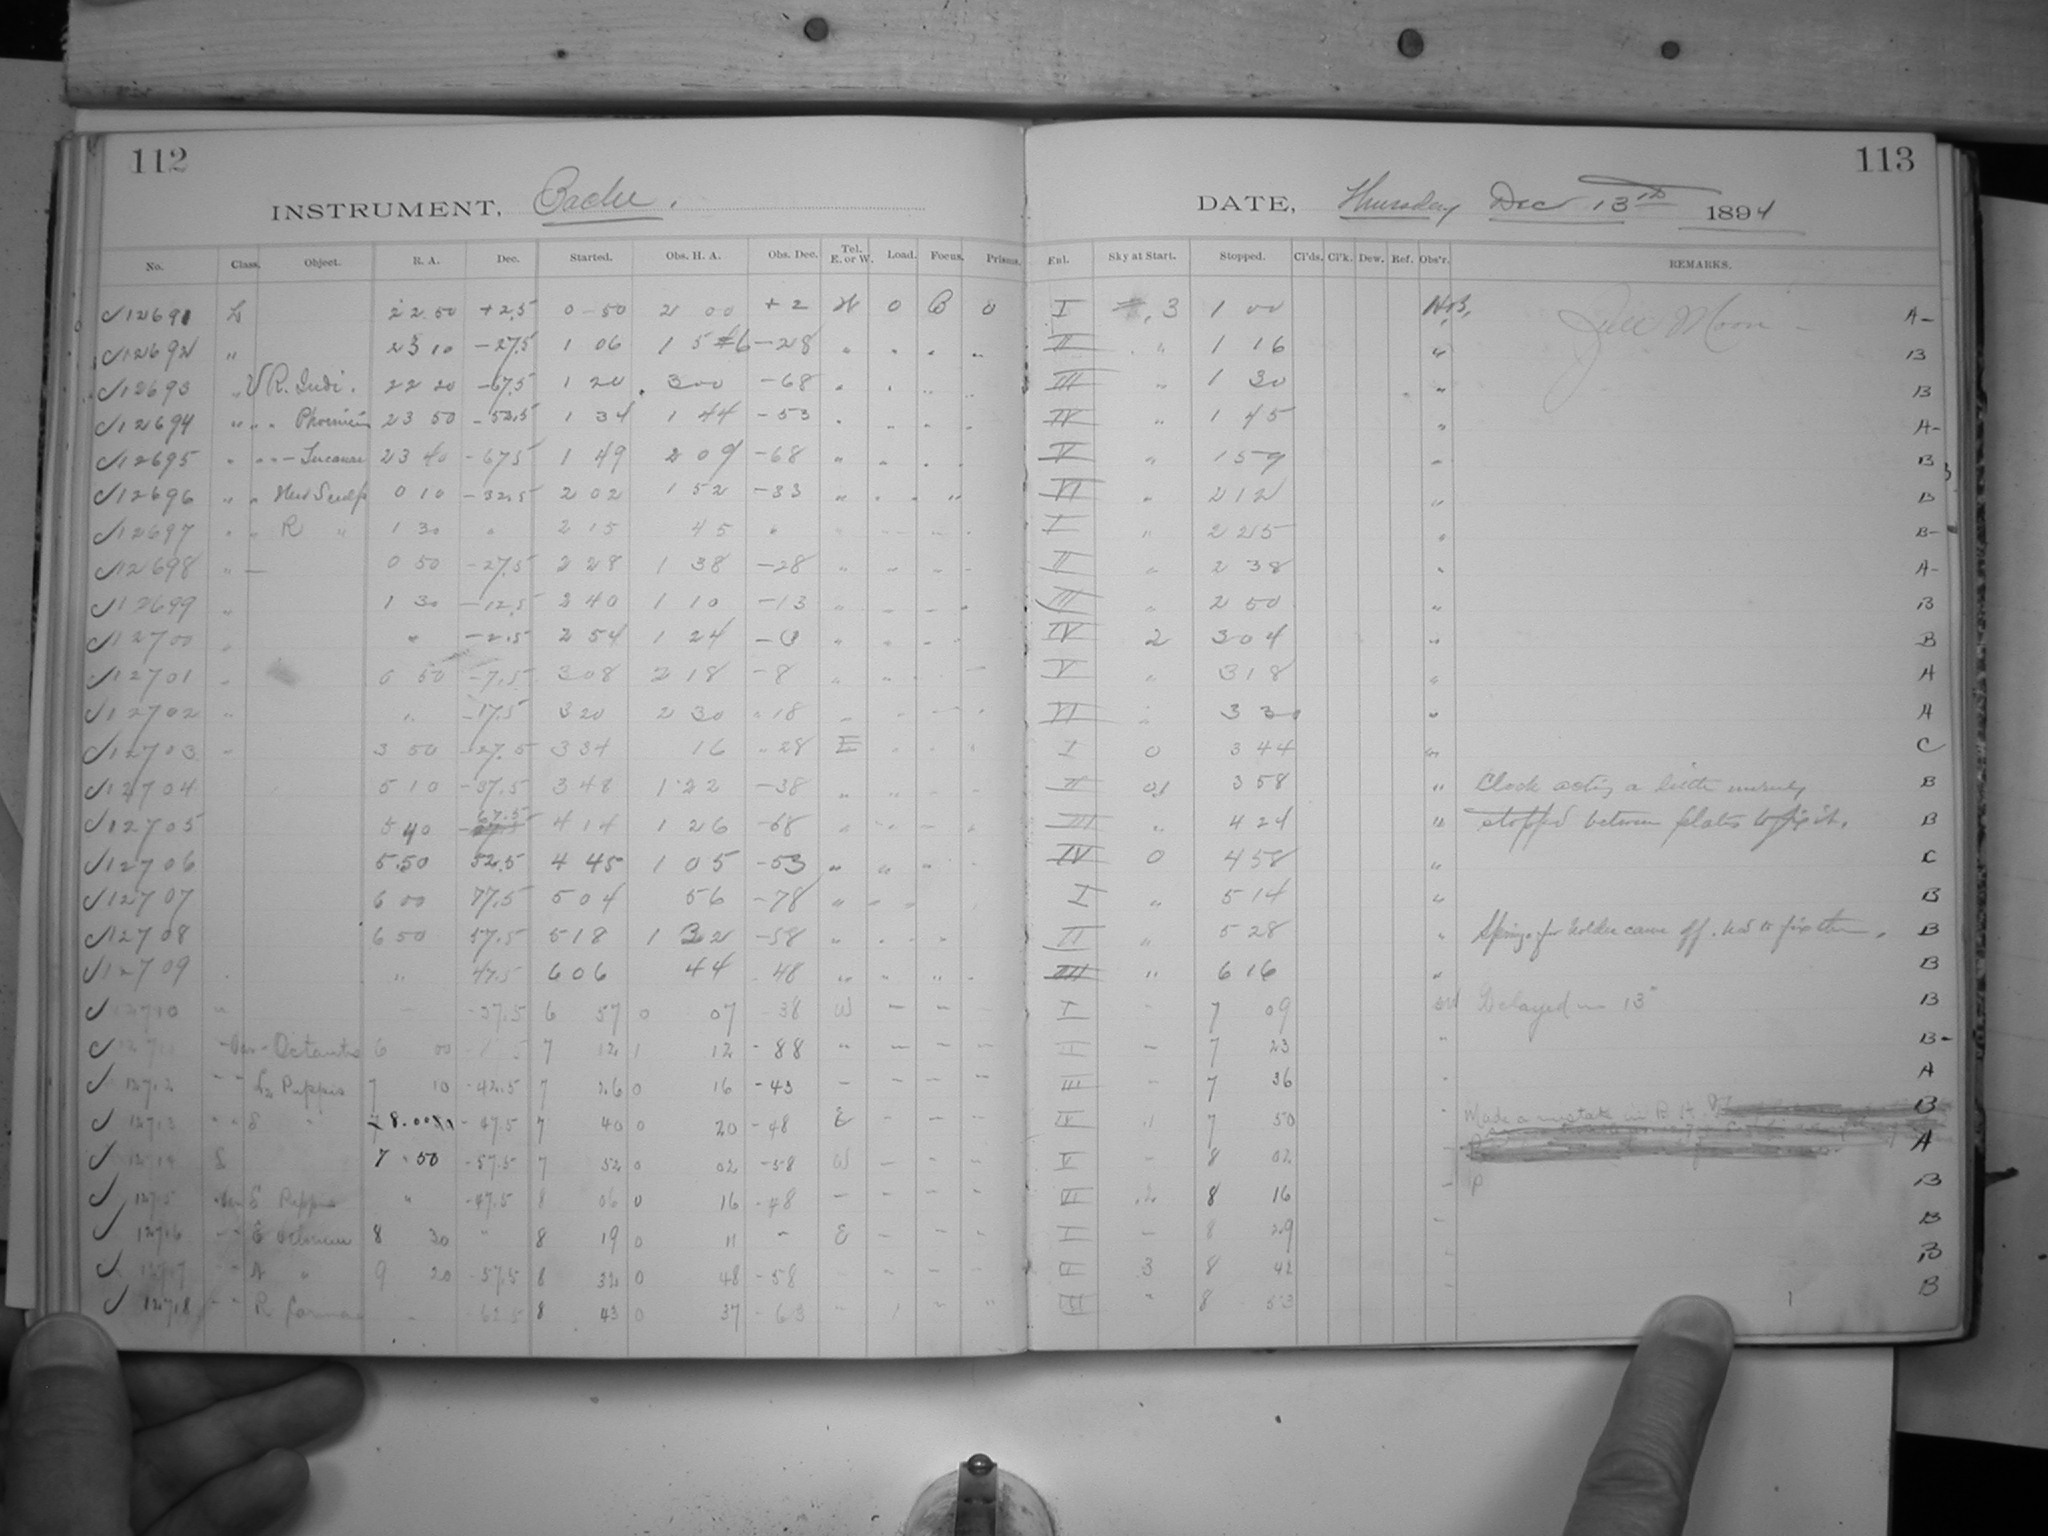 112
113
INSTRUMENT, Bache.
DATE, Thursday Dec 13th 1894
No. Class. Object. R. A. Dec. Started. Obs. H. A. Obs. Dec. Tel. E. or W. Load. Focus. Prisms. Enl. Sky at Start. Stopped. Cl'ds. Cl'k. Dew. Ref. Obs'r. REMARKS.
✓12691 L 22 50 +2.5 0 50 2 00 +2 W 0 B 0 I 3 1 00 Full Moon A-
✓12692 " 23 10 -27.5 1 06 1 56 -28 " " " " II " 1 16 " B
✓12693 " V R. Indi. 22 20 -67.5 1 20 3 00 -68 " " " " III " 1 30 " B
✓12694 " " " Phoenicis 23 50 -52.5 1 34 1 44 -53 " " " " IV " 1 45 " A-
✓12695 " " " Tucanae 23 40 -67.5 1 49 2 09 -68 " " " " V " 1 59 " B
✓12696 " " 0 10 -32.5 2 02 1 52 -33 " " " " VI " 2 12 " B
✓12697 " " R " 1 30 " 2 15 45 " " " " " I " 2 25 " B-
✓12698 " — 0 50 -27.5 2 28 1 38 -28 " " " " II " 2 38 " A-
✓12699 " 1 30 -12.5 2 40 1 10 -13 " " " " III " 2 50 " B
✓12700 " " -2.5 2 54 1 24 " " " " IV 2 3 04 " B
✓12701 " 0 50 -7.5 3 08 2 18 -8 " " " - V " 3 18 " A
✓12702 " " -17.5 3 20 2 30 " 18 " " " " VI " 3 30 " A
✓12703 " 3 50 -27.5 3 34 16 " 28 E " " " I 0 3 44 " C
✓12704 5 10 -37.5 3 48 1 22 -38 " " " " II 0.1 3 58 " Clock acting a little B
✓12705 5 40 67.5 4 14 1 26 -68 " " " " III " 4 24 " stopped between plates to fix it. B
✓12706 5.50 52.5 4 45 1 05 -53 " " " IV 0 4 58 " C
✓12707 6 00 77.5 5 04 56 -78 " " " I " 5 14 " B
✓12708 6 50 57.5 5 18 1 32 -58 " " " " II " 5 28 " Springs for holder came off. had to fix them. B
✓12709 " 47.5 6 06 44 48 " " " " III " 6 16 " B
✓12710 " - -37.5 6 57 0 07 -38 W - - - I - 7 09 Delayed B
✓ - Var - Octantis 6 00 7 12 1 12 -88 " - - - II - 7 23 " B-
✓12712 - - L2 Puppis 7 10 -42.5 7 26 0 16 -43 - - - - III - 7 36 A
✓12713 " " " 8.00 -47.5 7 40 0 20 -48 E - - - IV 7 50 " Made a mistake in R. A. B
✓12714 L 7 50 -57.5 7 52 0 02 -58 W - - - V - 8 02 A
✓12715 Puppis " -47.5 8 06 0 16 -48 - - - - VI 8 16 - B
✓12716 - - 8 30 " 8 19 0 11 - E - - - I - 8 29 - B
✓12717 - " 9 20 -57.5 8 32 0 48 -58 - - - II 3 8 42 B
✓12718 - - R Carinae - -62.5 8 43 0 37 -63 - - " III " 8 53 - B